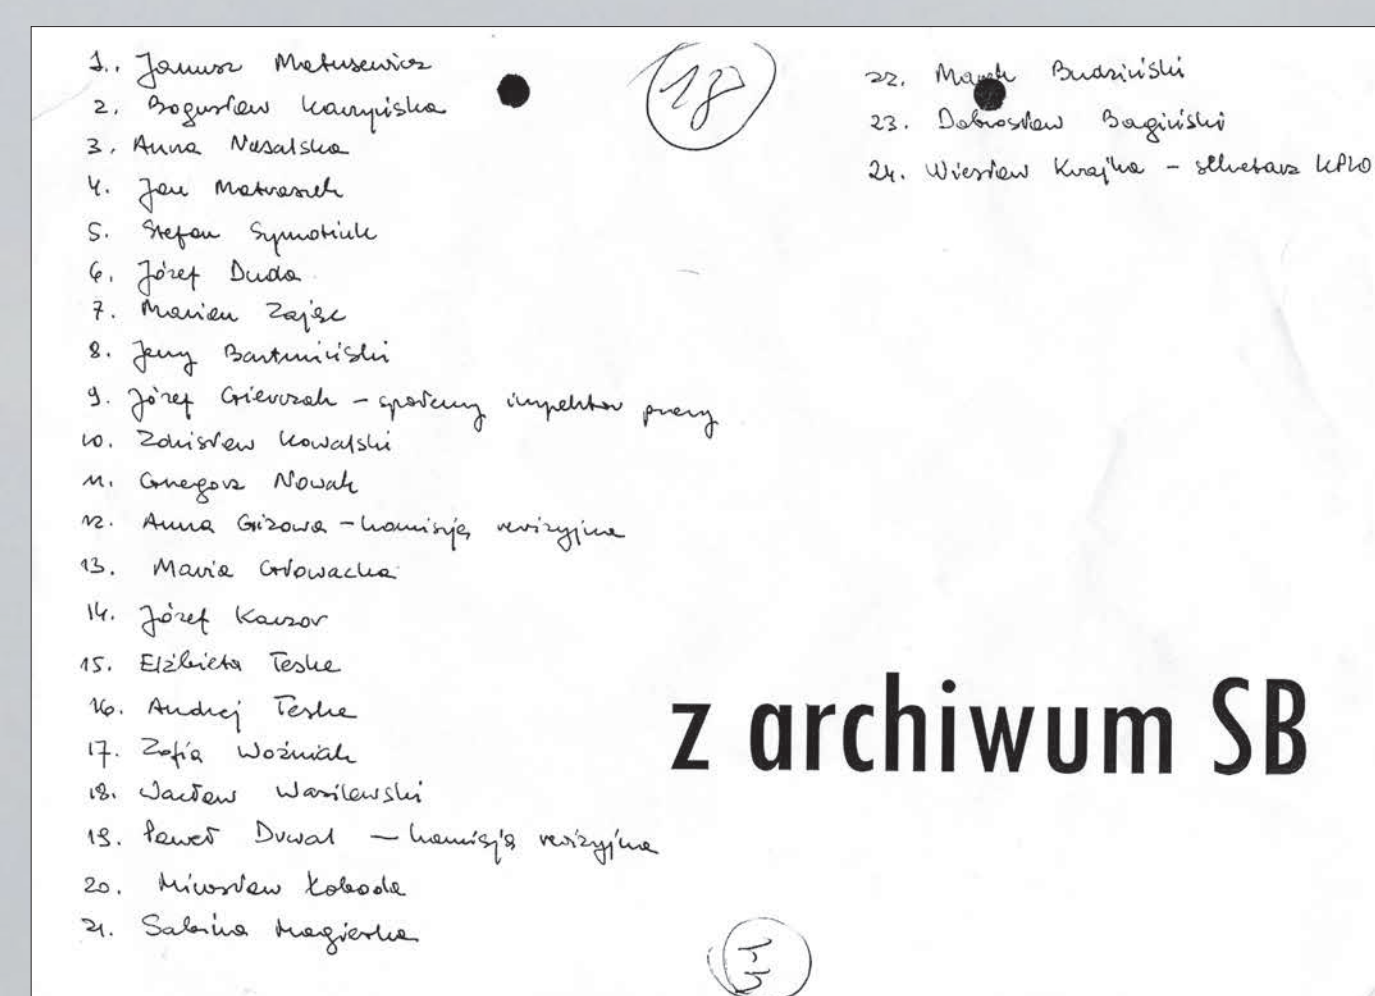 1. Janusz Matusewicz
2. Bogusław Karpińska
3. Anna Nasalska
4. Jan Matrasiek
5. Stefan Symotiuk
6. Józef Duda
7. Marian Zając
8. Jerzy Bartmiński
9. Józef Gierczak – społeczny inspektor pracy
10. Zdzisław Kowalski
11. Grzegorz Nowak
12. Anna Gizowa – komisja rewizyjna
13. Maria Głowacka
14. Józef Kaczor
15. Elżbieta Teske
16. Andrzej Teske
17. Zofia Woźniak
18. Wacław Wasilewski
19. Paweł Duwal – komisja rewizyjna
20. Mirosław Łoboda
21. Sabina Magierska
18
22. Marek Budziński
23. Dobrosław Bagiński
24. Wiesław Krajka – sekretarz
z archiwum SB